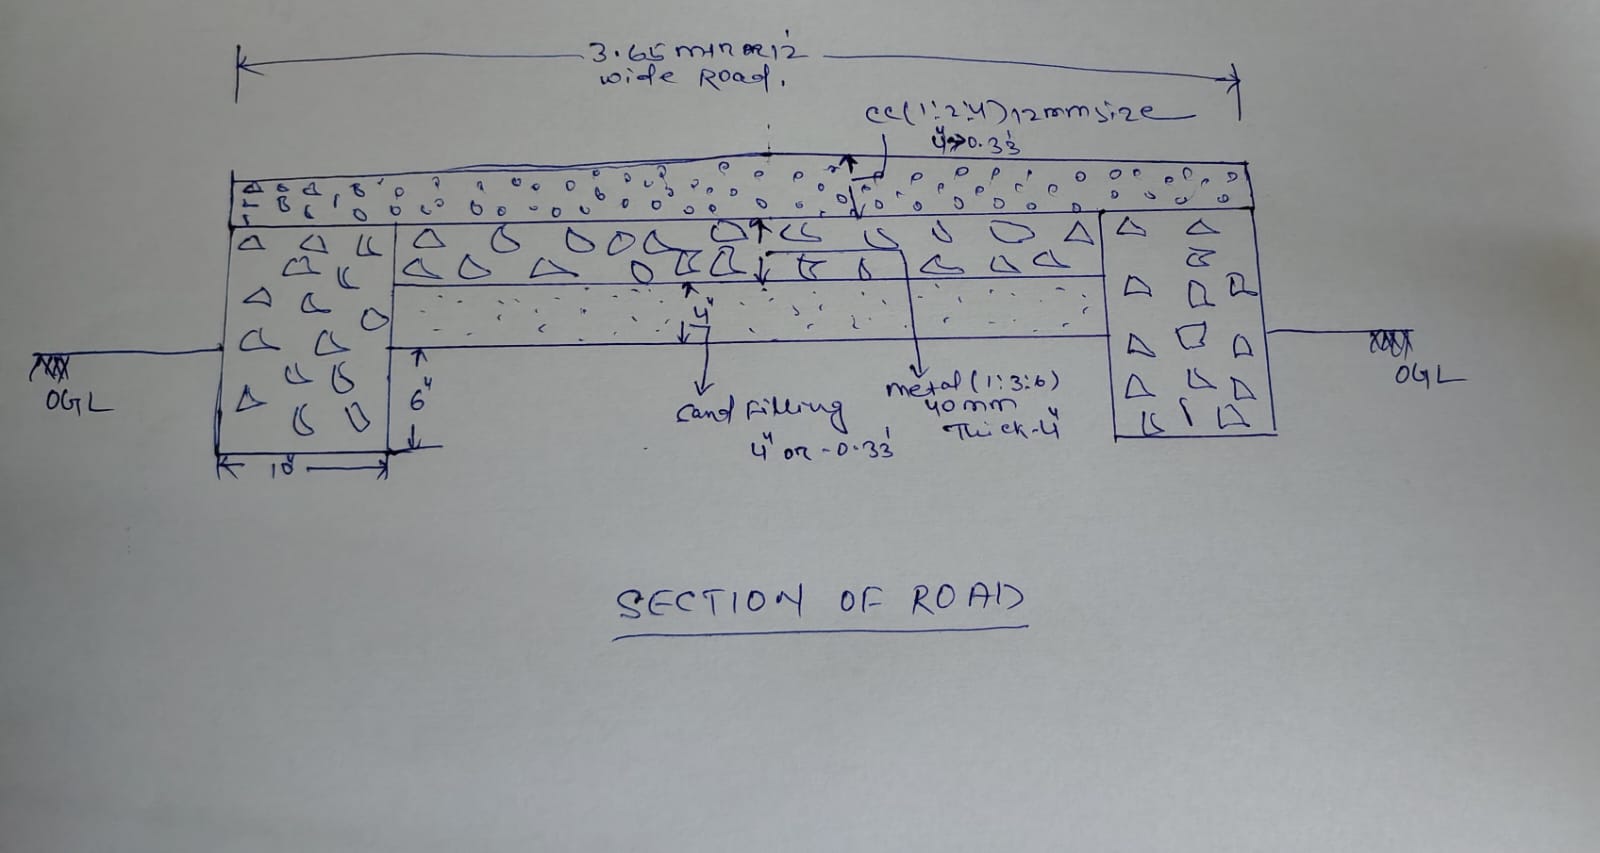 3.65 mtr or 12'
wide Road.
cc(1:2:4) 12mm size
4"→0.33'
4"
OGL
6"
Sand Filling
4" or -0.33'
metal (1:3:6)
40mm
Thick-4"
OGL
10"
SECTION OF ROAD